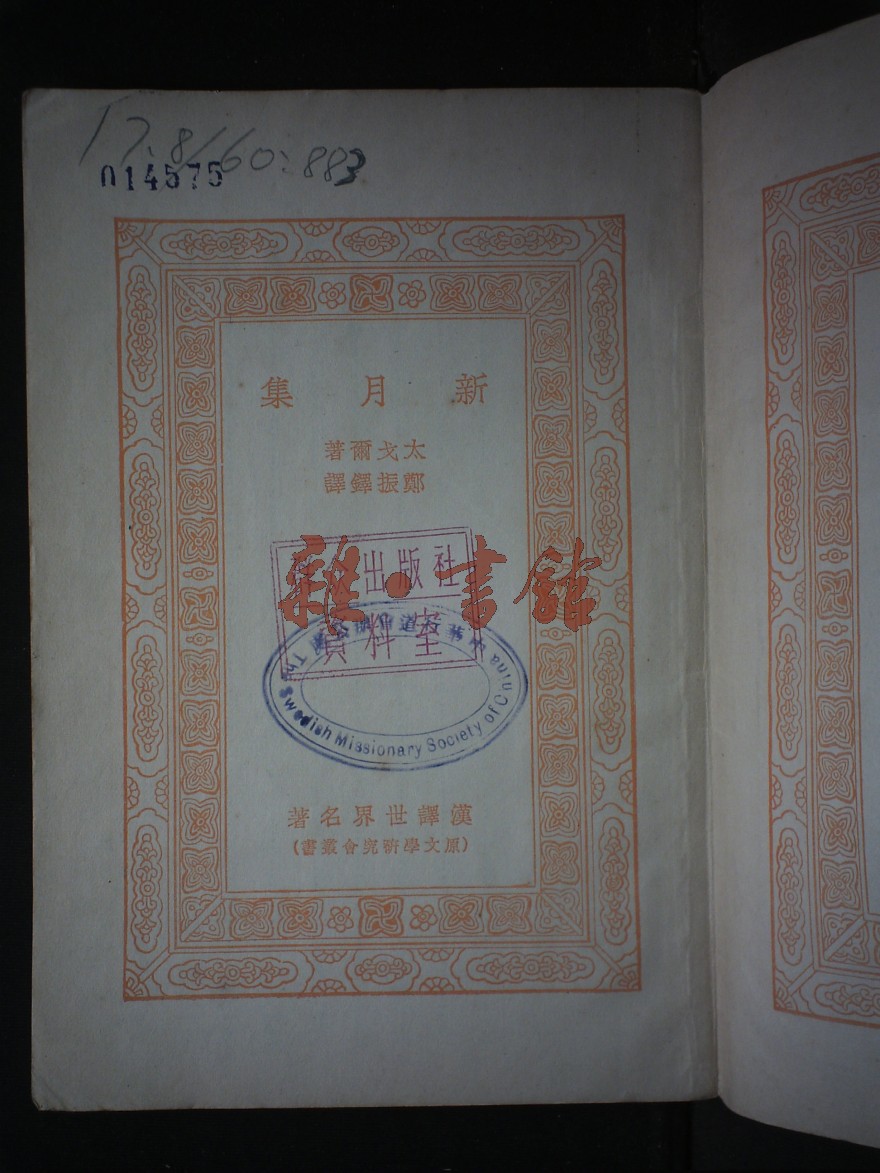 17.8/60:883
014575
新月集
太戈爾著
鄭振鐸譯
雜·書館
出版社
資料室
The Swedish Missionary Society of China
漢譯世界名著
(原文學研究會叢書)